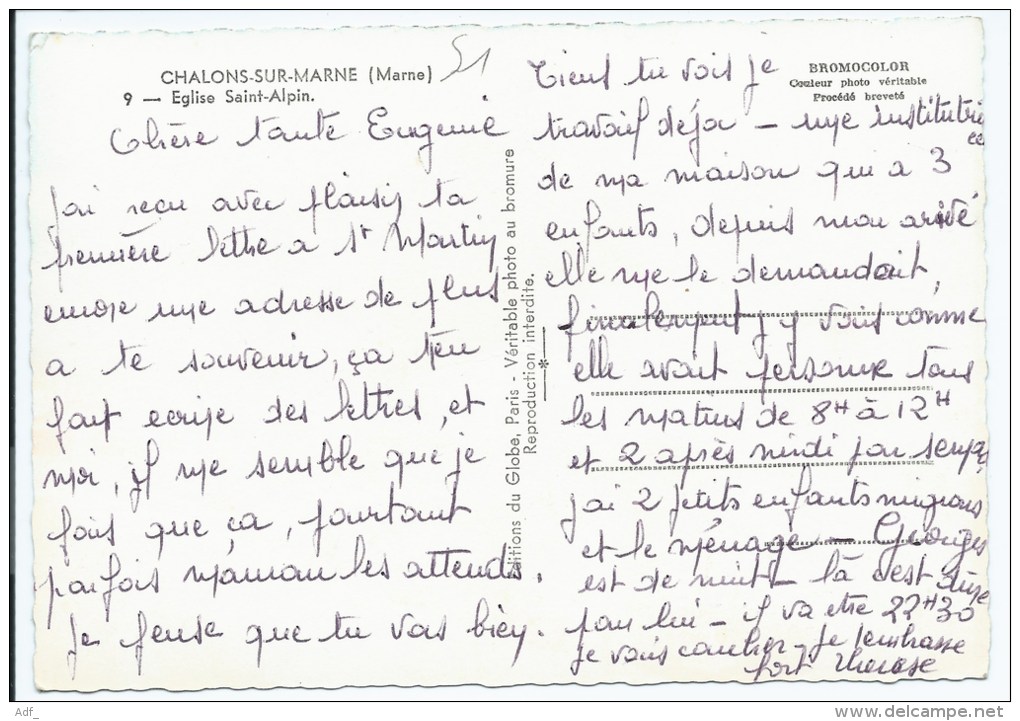 CHALONS-SUR-MARNE (Marne)
9 — Eglise Saint-Alpin.
51
BROMOCOLOR
Couleur photo véritable
Procédé breveté
Chère tante Eugenie
J'ai reçu avec plaisir ta
première lettre a St Martin
encore une adresse de plus
a te souvenir, ça t'en
fait ecrire des lettres, et
moi, il me semble que je
fais que ça, pourtant
parfois Maman les attends.
Je pense que tu vas bien.
Editions du Globe, Paris - Véritable photo au bromure
Reproduction interdite.
Tiens tu vois je
travail déja — une institutrice
de ma maison qui a 3
enfants, depuis mon arrivé
elle me le demandait,
finalement j'y vais comme
elle avait personne tous
les matins de 8H à 12H
et 2 après midi par semaine
j'ai 2 petits enfants mignons
et le ménage — Georges
est de nuit — là c'est dure
pour lui — il va etre 22H30
je vais coucher — je t'embrasse
fort Therese
Adf_
www.delcampe.net